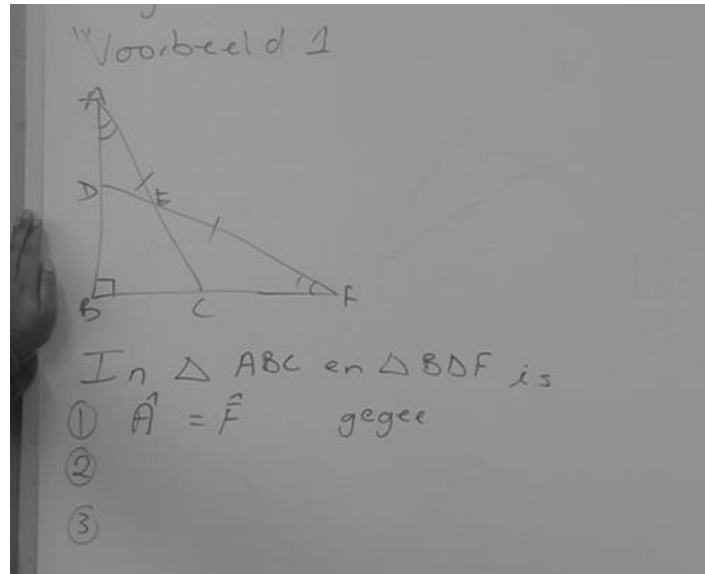 Voorbeeld 1
A
D
E
B
C
F
In △ ABC en △ BDF is
① Â = F̂ gegee
②
③